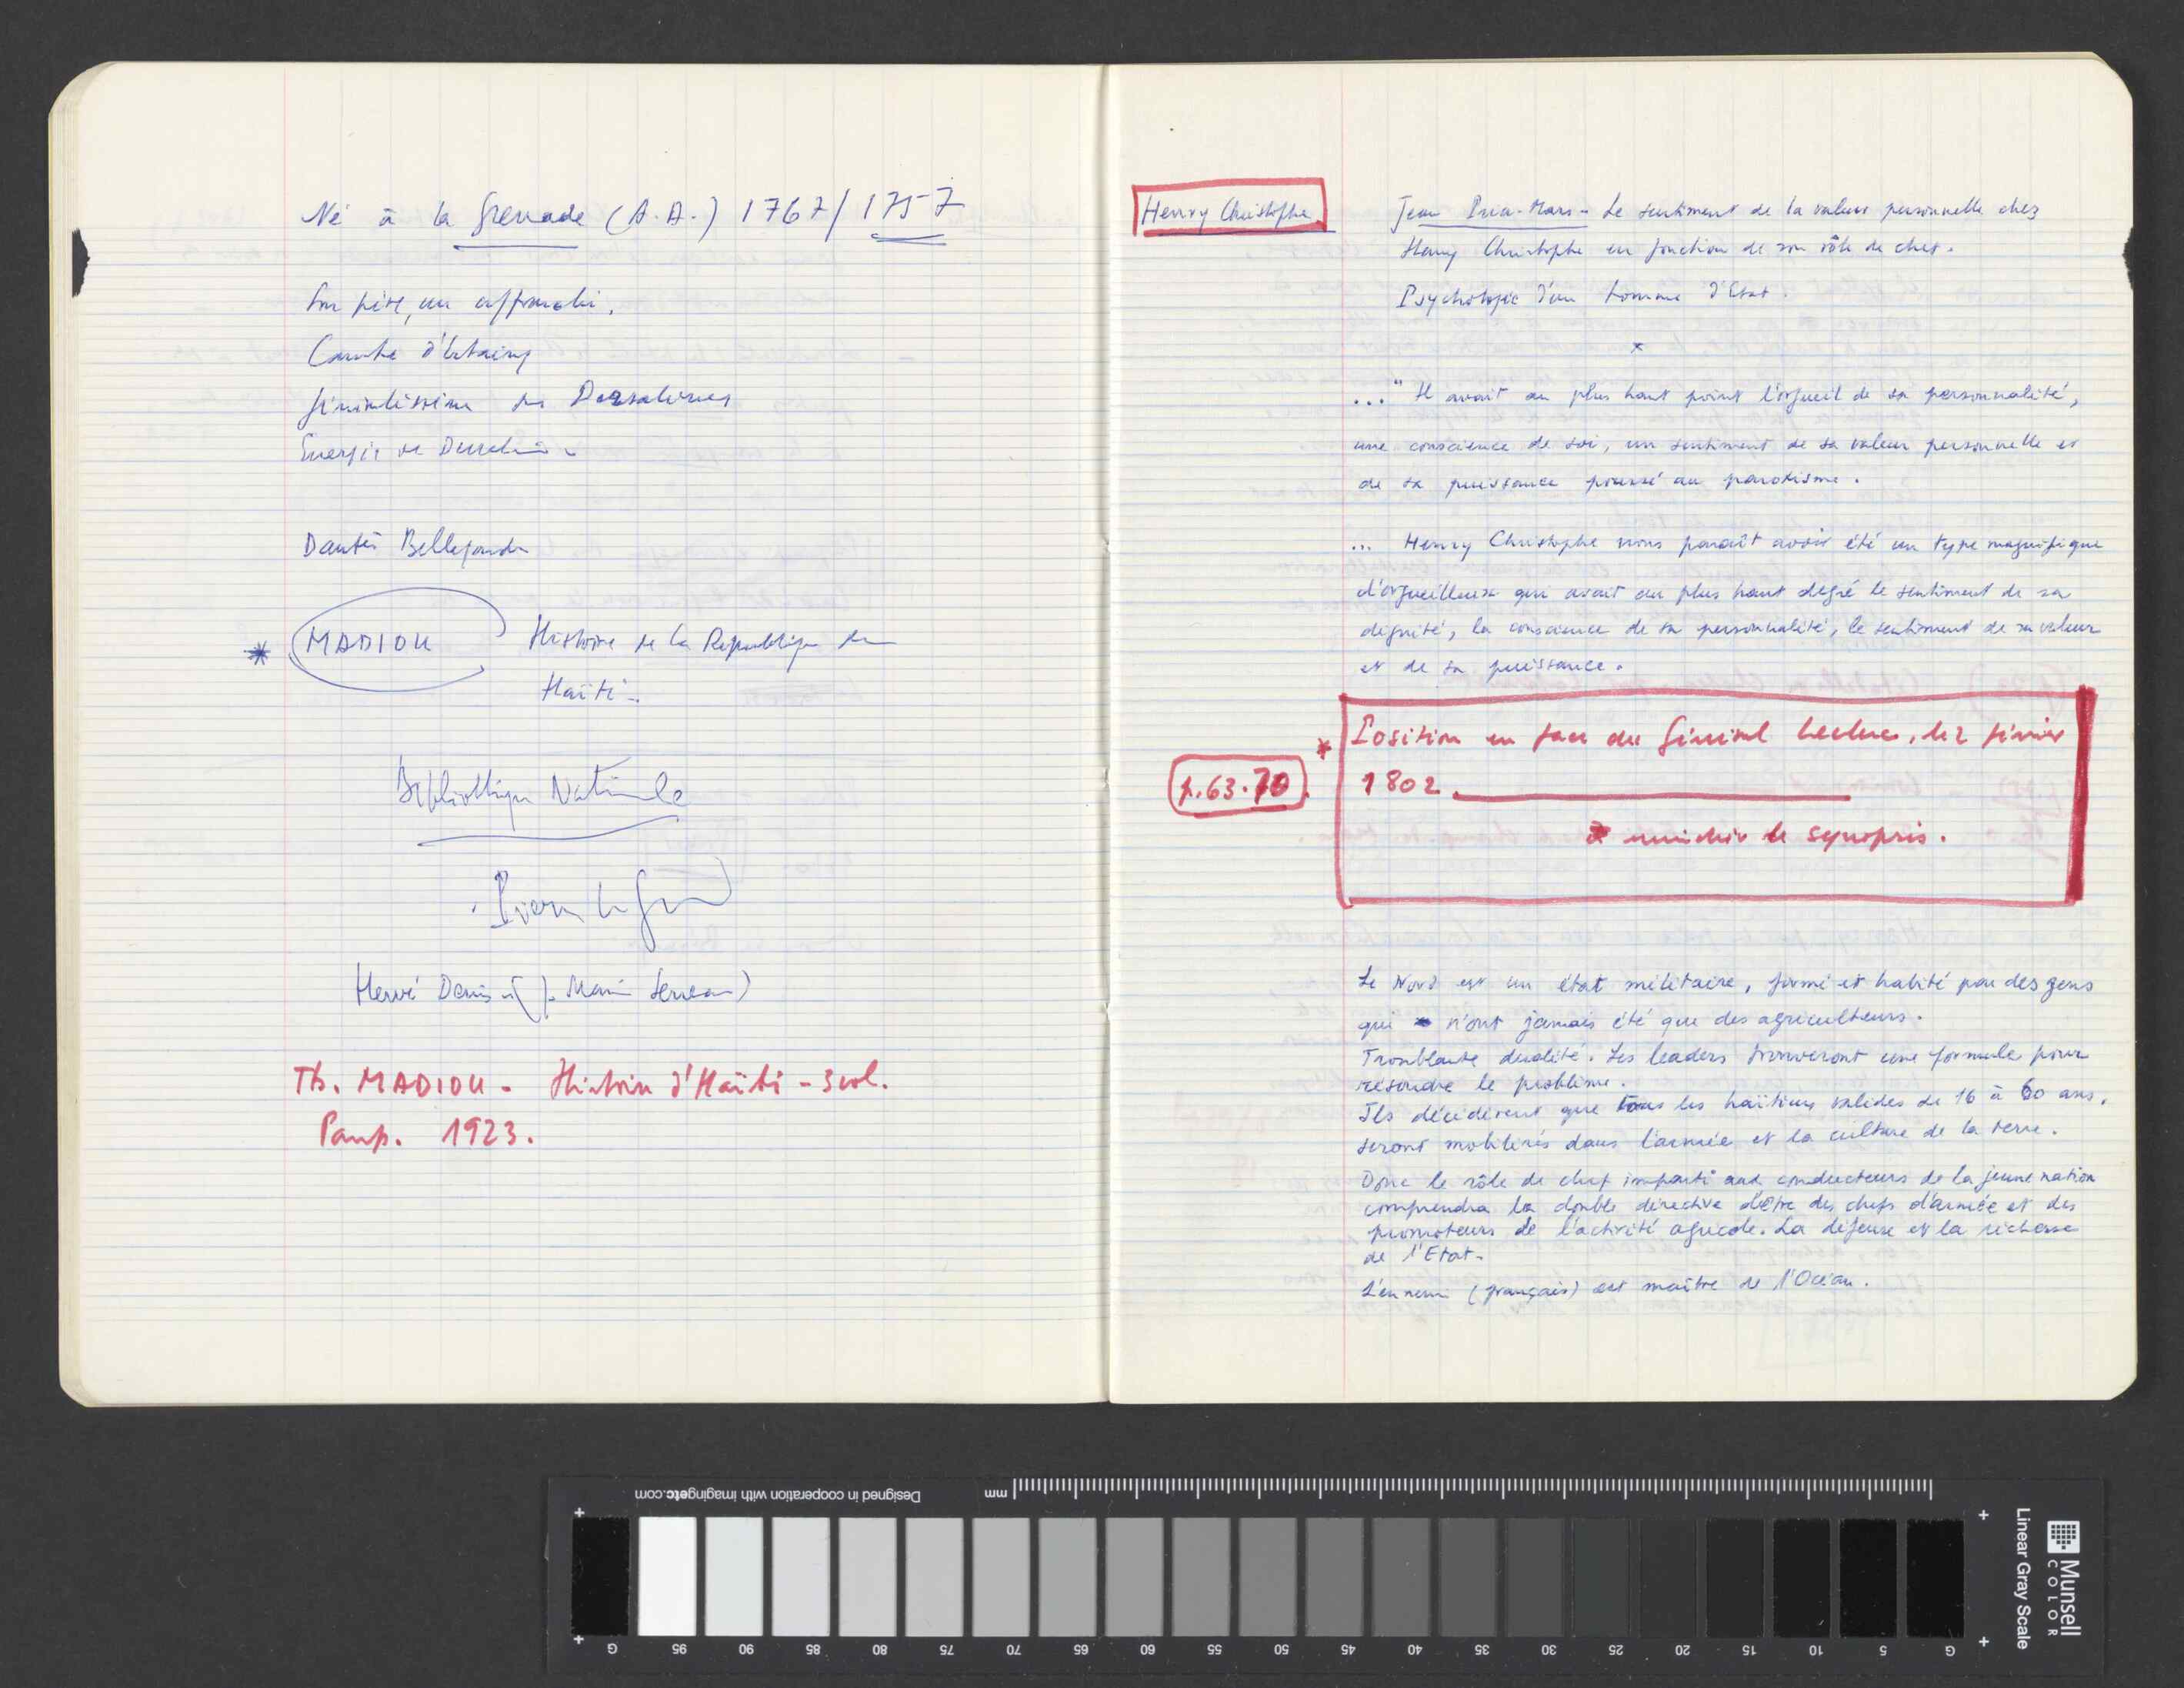 Né à la Grenade (A.A.) 1767/1757
Son père, un affranchi.
Comte d'Estaing
généralissime de Dessalines
Energie de Dessalines
Dantès Bellegarde
* MADIOU Histoire de la République de
Haïti.
Bibliothèque Nationale
Hervé Denis (J. Marie Serreau)
Th. MADIOU - Histoire d'Haïti - 3 vol.
Paup. 1923.
Henry Christophe
Jean Price-Mars - Le sentiment de la valeur personnelle chez
Henry Christophe en fonction de son rôle de chef.
Psychologie d'un homme d'Etat.
x
..." Il avait au plus haut point l'orgueil de sa personnalité,
une conscience de soi, un sentiment de sa valeur personnelle et
de sa puissance poussé au paroxisme.
... Henry Christophe nous paraît avoir été un type magnifique
d'orgueilleux qui avait au plus haut degré le sentiment de sa
dignité, la conscience de sa personnalité, le sentiment de sa valeur
et de sa puissance.
* Position en face du Général Leclerc, le 2 février
p.63.70. 1802.
enrichir le synopsis.
Le Nord est un état militaire, formé et habité par des gens
qui n'ont jamais été que des agriculteurs.
Troublante dualité. Les leaders trouveront une formule pour
résoudre le problème.
Ils décidèrent que tous les haïtiens valides de 16 à 60 ans.
seront mobilisés dans l'armée et la culture de la terre.
Donc le rôle de chef imparti aux conducteurs de la jeune nation
comprendra la double directive d'être des chefs d'armée et des
promoteurs de l'activité agricole. La défense et la richesse
de l'Etat.
L'ennemi (français) est maître de l'Océan.
Designed in cooperation with imagingetc.com
mm
G 95 90 85 80 75 70 65 60 55 50 45 40 35 30 25 20 15 10 5 G
Munsell
COLOR
Linear Gray Scale